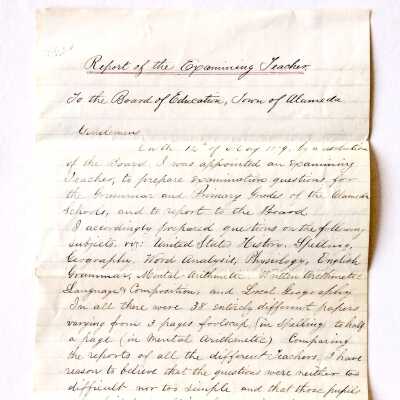 Report of the Examining Teacher.
To the Board of Education, Town of Alameda
Gentlemen
On the 12th of May by a resolution
of the Board, I was appointed an Examining
Teacher, to prepare examination questions for
the Grammar and Primary Grades of the Alameda
Schools, and to report to the Board.
I accordingly prepared questions on the following
subjects. viz: United States History, Spelling,
Geography, Word Analysis, Physiology, English
Grammar, Mental Arithmetic, Written Arithmetic
Language & Composition, and Local Geography.
In all there were 38 entirely different papers
varying from 3 pages foolscap (in Spelling) to half
a page (in Mental Arithmetic). Comparing
the reports of all the different Teachers, I have
reason to believe that the questions were neither too
difficult nor too simple and that those pupils